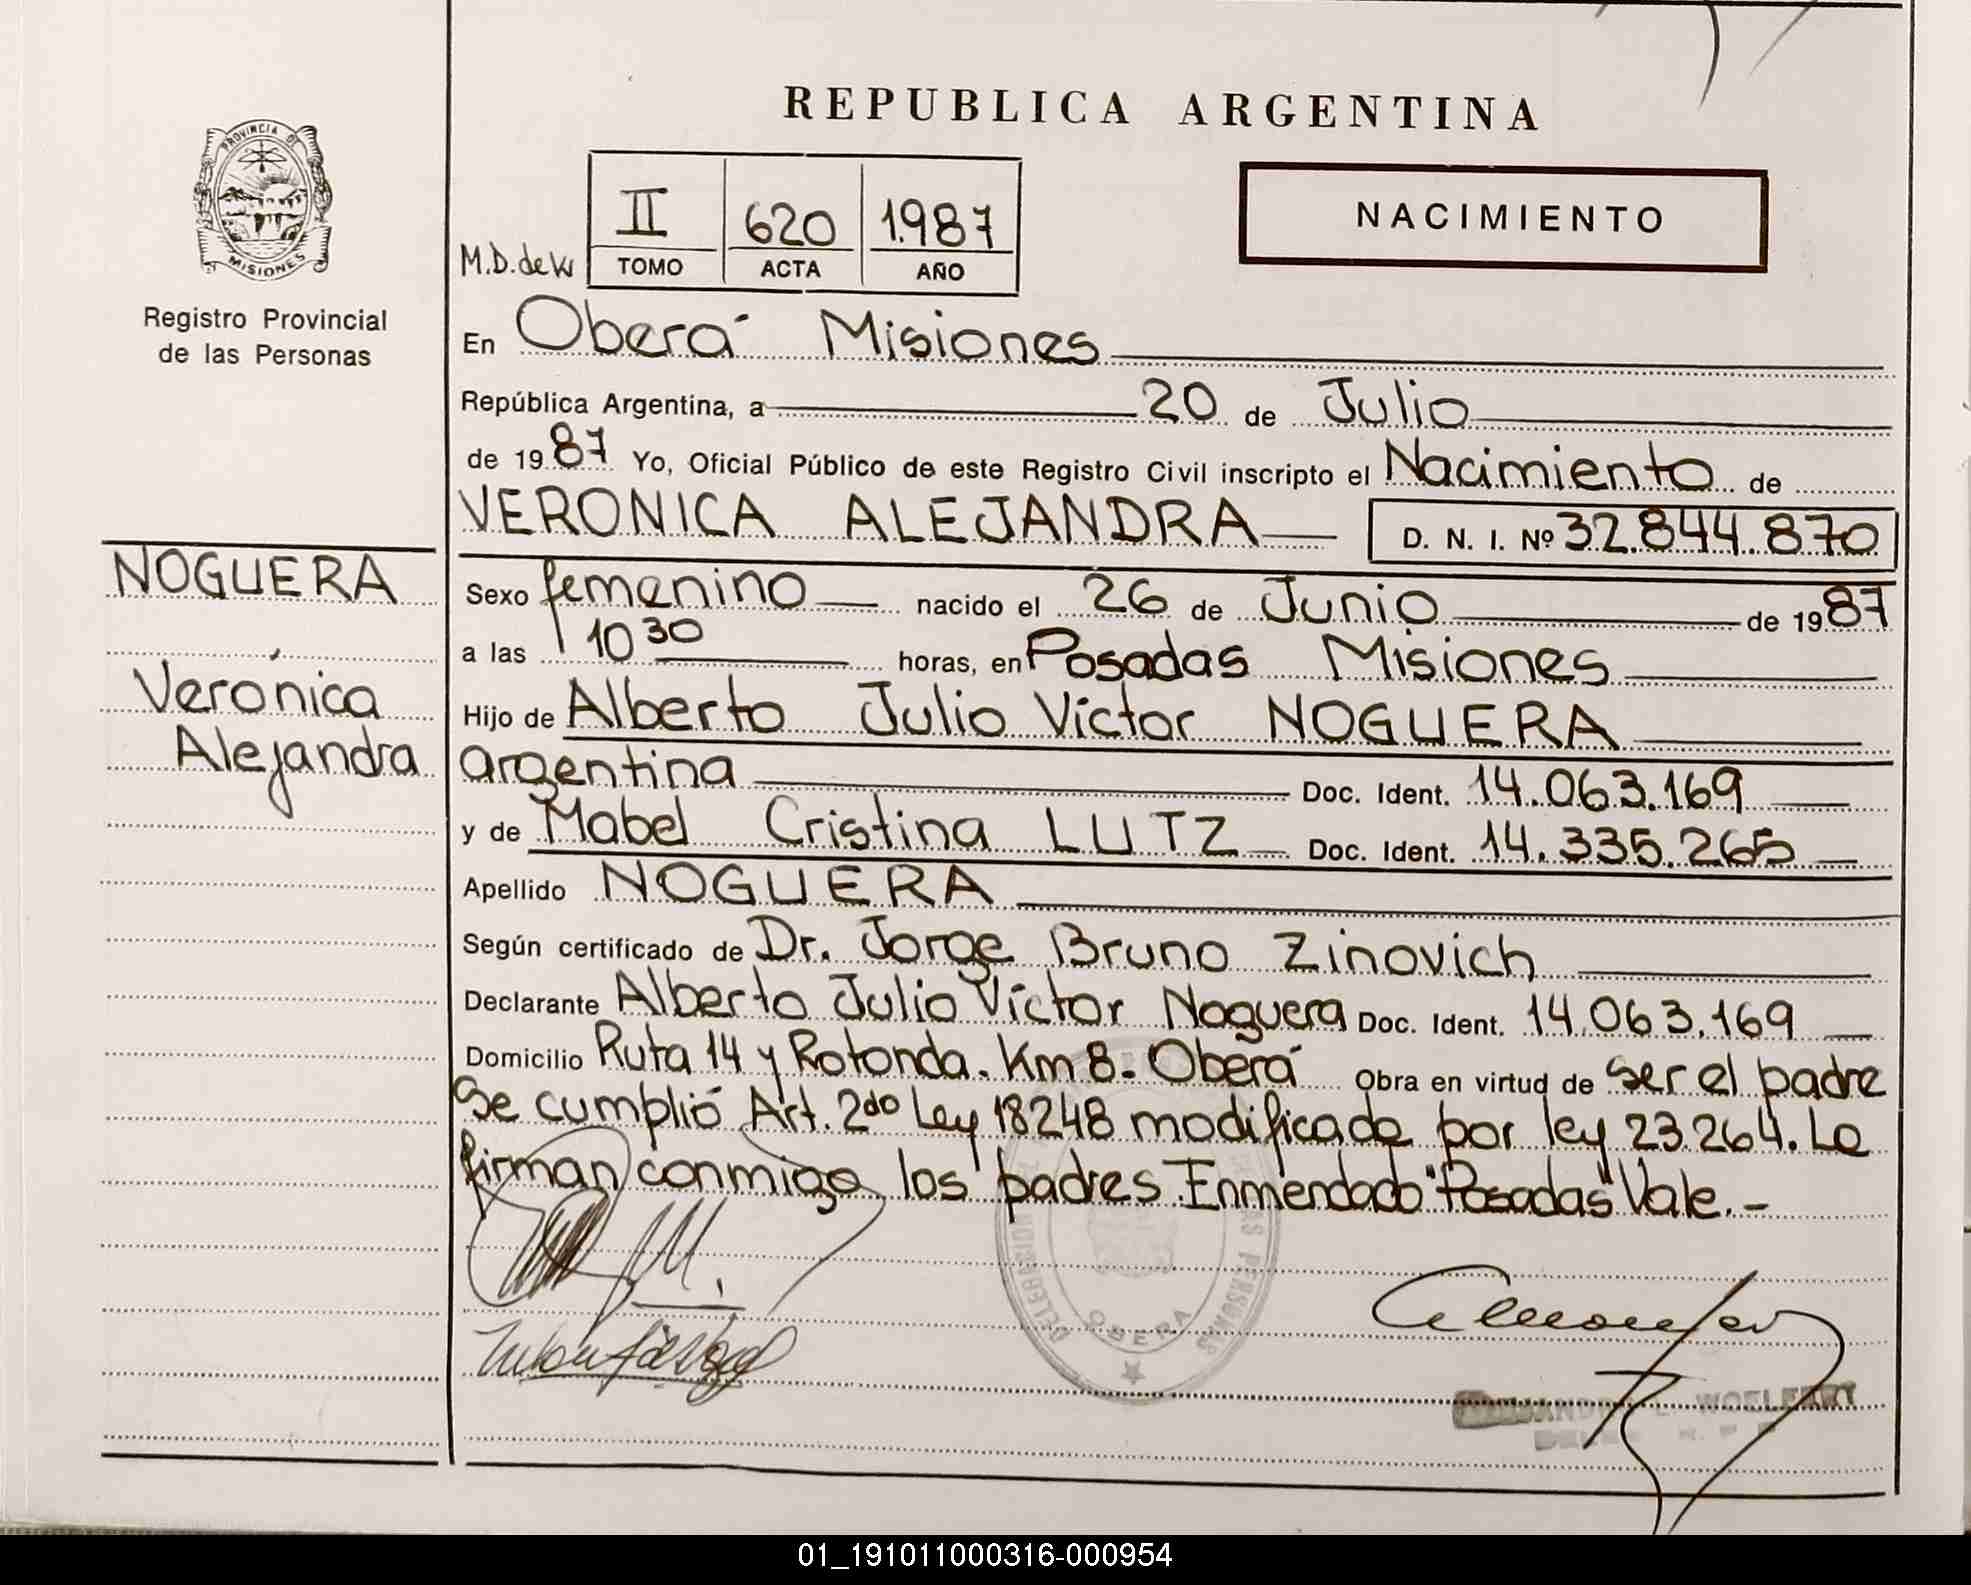 REPUBLICA ARGENTINA
PROVINCIA DE
MISIONES
Registro Provincial
de las Personas
II 620 1.987
M.D. de W
TOMO ACTA AÑO
NACIMIENTO
En Oberá Misiones
República Argentina, a 20 de Julio
de 1987 Yo, Oficial Público de este Registro Civil inscripto el Nacimiento de
VERONICA ALEJANDRA D. N. I. Nº 32.844.870
NOGUERA
Verónica
Alejandra
Sexo femenino nacido el 26 de Junio de 1987
a las 10 30 horas, en Posadas Misiones
Hijo de Alberto Julio Víctor NOGUERA
argentina Doc. Ident. 14.063.169
y de Mabel Cristina LUTZ Doc. Ident. 14.335.265
Apellido NOGUERA
Según certificado de Dr. Jorge Bruno Zinovich
Declarante Alberto Julio Víctor Noguera Doc. Ident. 14.063.169
Domicilio Ruta 14 y Rotonda. Km 8. Oberá Obra en virtud de ser el padre
Se cumplió Art. 2do Ley 18248 modificada por ley 23.264. Le
firman conmigo los padres Enmendado "Posadas" Vale.-
OBERA
WOELFERT
01_191011000316-000954